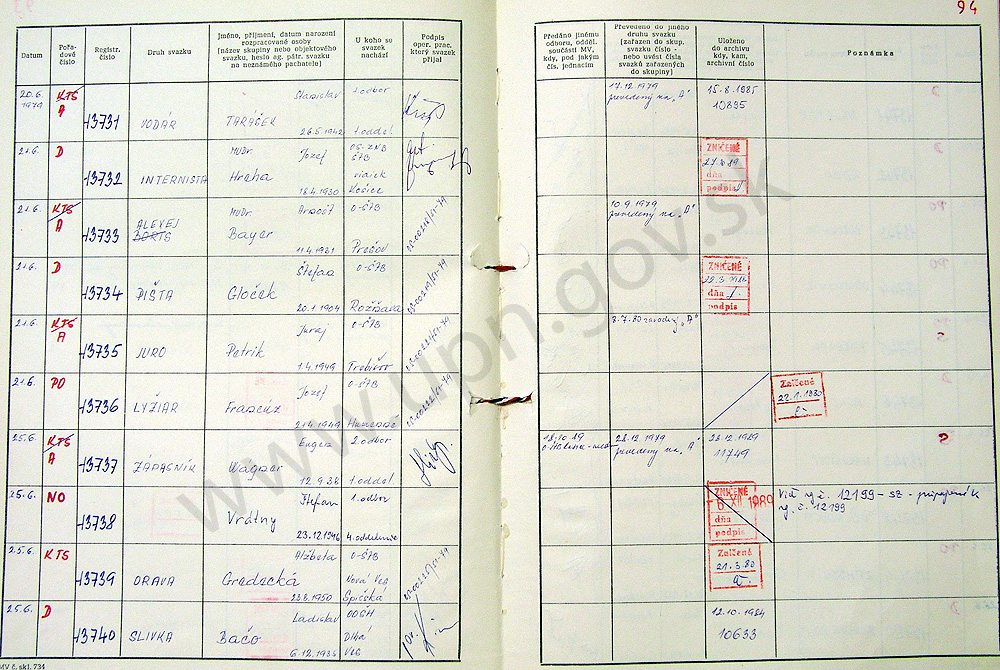 94
Datum
Pořa-
dové
číslo
Registr.
číslo
Druh svazku
Jméno, příjmení, datum narození
rozpracované osoby
[název skupiny nebo objektového
svazku, heslo ag. pátr. svazku
na neznámého pachatele]
U koho se
svazek
nachází
Podpis
oper. prac.
který svazek
přijal
Předáno jinému
odboru, odděl.
součásti MV,
kdy, pod jakým
čís. jednacím
Převedeno do jiného
druhu svazku
[zařazen do skup.
svazku číslo -
nebo uvési čísla
svazků zařazených
do skupiny]
Uloženo
do archivu
kdy, kam,
archivní číslo
Poznámka
20.6.
1979
KTS
A
13731
VODÁR
Stanislav
TARAČEK
26.5.1942
1.odbor
1.oddel.
17.12.1979
prevedený na "A"
15.8.1985
10895
21.6.
D
13732
INTERNISTA
MUDr.
Jozef
Hreha
18.4.1930
OS-ZNB
ŠtB
Košice
ZNIČENÉ
dňa
podpis
21.6.
KTS
A
13733
ALEXEJ
BORIS
MUDr.
Bayer
11.4.1921
O-ŠtB
Prešov
10.9.1979
prevedený na "A"
21.6.
D
13734
PIŠTA
Štefan
Gloček
20.1.1904
O-ŠtB
Rožňava
ZNIČENÉ
dňa
podpis
21.6.
KTS
A
13735
JURO
Juraj
Petrik
1.4.1949
O-ŠtB
Trebišov
21.6.
PO
13736
LYŽIAR
Jozef
2.1.1949
O-ŠtB
Humenné
Zničené
22.1.1980
25.6.
KTS
A
13737
ZÁPASNÍK
Eugen
Wagner
12.9.38
2.odbor
1.oddel.
18.10.89
28.12.1979
prevedený na "A"
28.12.1989
11749
25.6.
NO
13738
Štefan
Vrátny
23.12.1946
1.odbor
4.oddelenie
ZNIČENÉ
6 XII 1989
dňa
podpis
Viď rg.č. 12199 - sz - pripojený k
rg.č. 12199
25.6.
KTS
13739
ORAVA
Alžbeta
Gredecká
23.8.1950
O-ŠtB
Nová Ves
Spišská
Zničené
21.3.80
25.6.
D
13740
SLIVKA
Ladislav
Bačo
6.12.1936
OOČH
Dlhá
Ves
12.10.1984
10633
MV č. skl. 734
www.upn.gov.sk